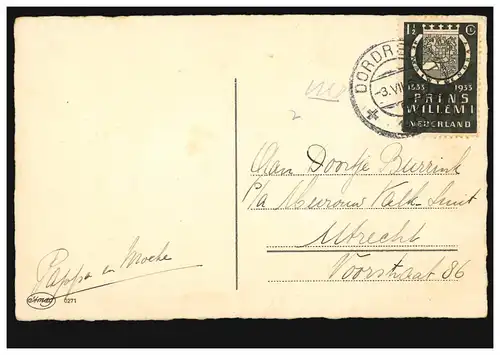 1½ ct
1533 1933
PRINS
WILLEM I
NEDERLAND
DORDRE
-3.VII
Aan Doortje Burrink
p/a Mevrouw Valk Smit
Utrecht
Voorstraat 86
Pappa en Moeke
2